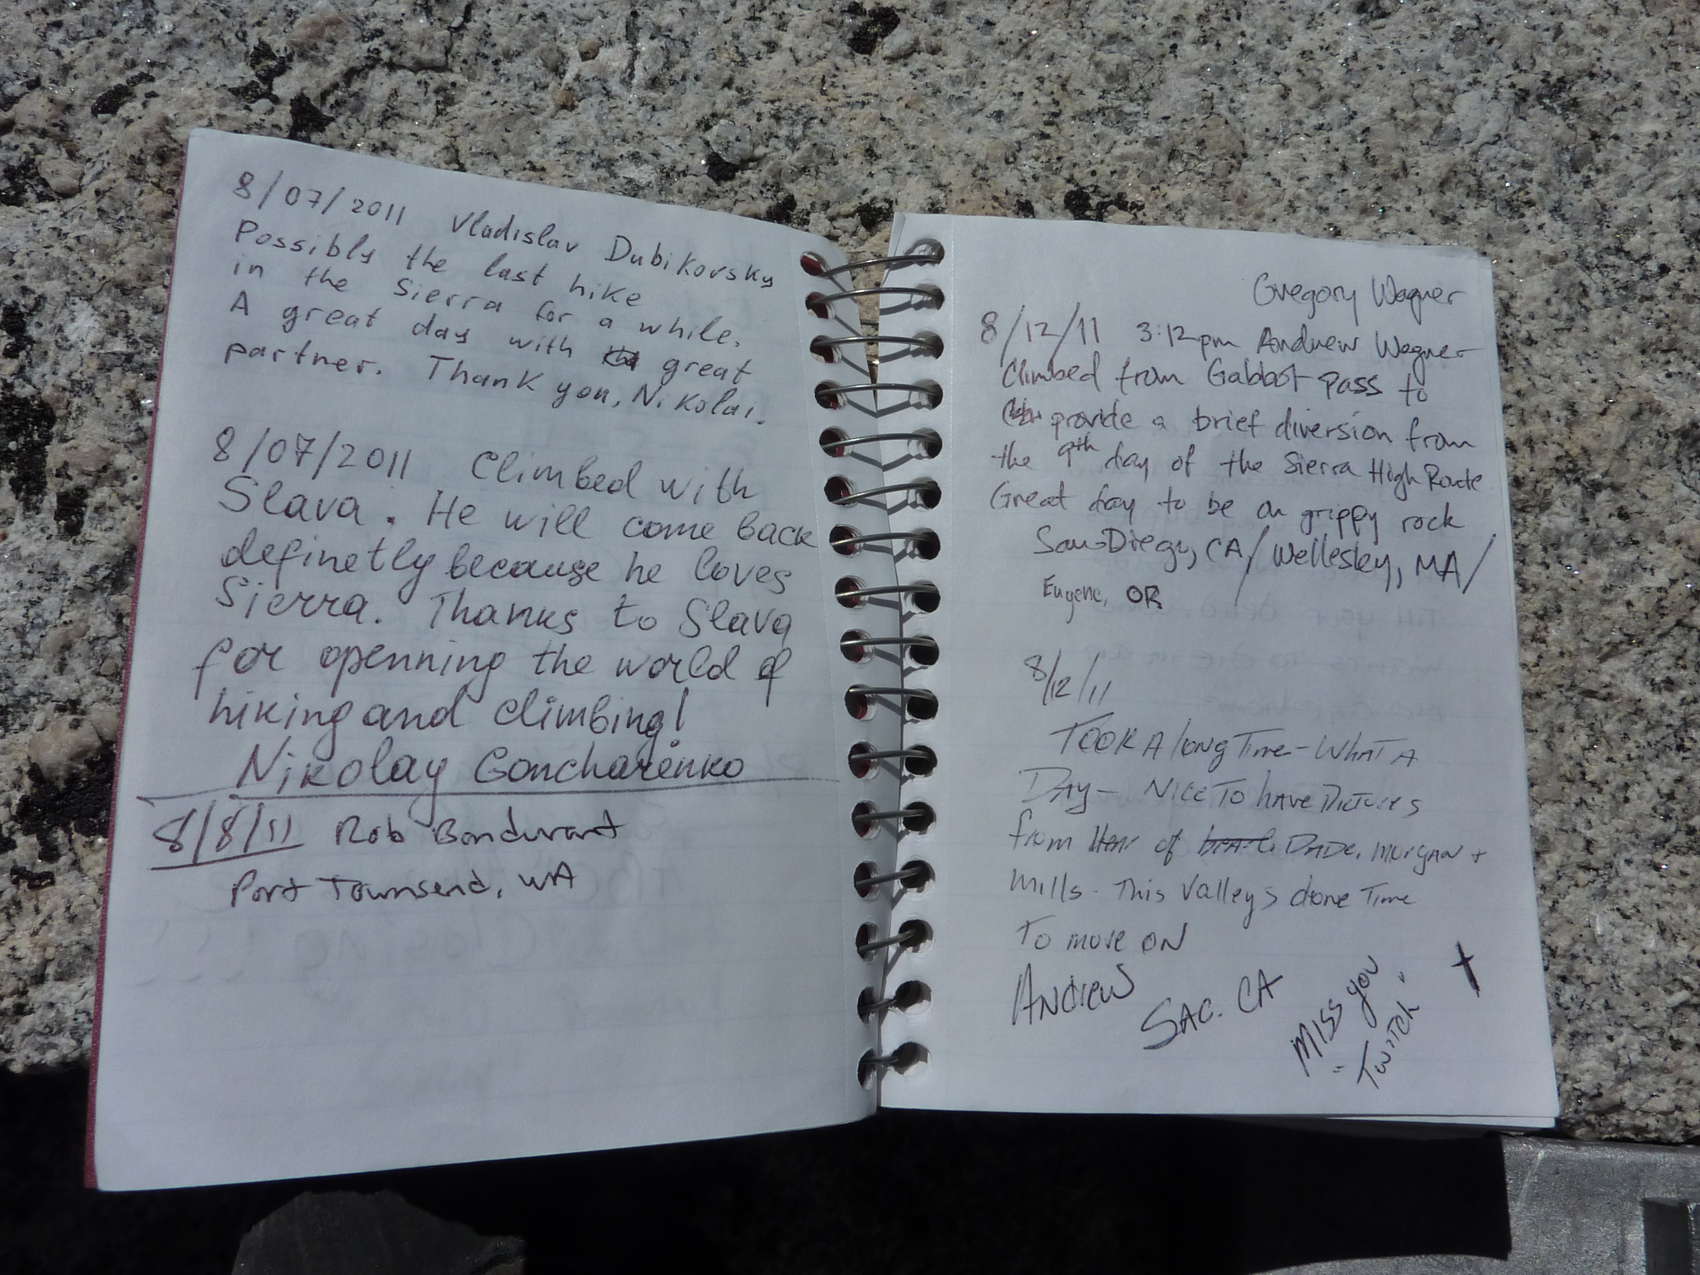 8/07/2011 Vladislav Dubikovsky
Possibly the last hike
in the Sierra for a while.
A great day with great
partner. Thank you, Nikolai.
8/07/2011 Climbed with
Slava. He will come back
definetly because he loves
Sierra. Thanks to Slava
for openning the world of
hiking and climbing!
Nikolay Goncharenko
8/8/11 Rob Bondurant
Port Townsend, WA
Gregory Wagner
8/12/11 3:12pm Andrew Wagner
Climbed from Gabbot pass to
provide a brief diversion from
the 9th day of the Sierra High Route
Great day to be on grippy rock
San Diego, CA/Wellesley, MA/
Eugene, OR
8/12/11
TOOK A long Time - WHAT A
DAY - NICE TO HAVE PICTURES
from of DADE, Morgan +
Mills - This Valleys done Time
To move ON
ANDREW
SAC. CA
MISS you
- Twitch -